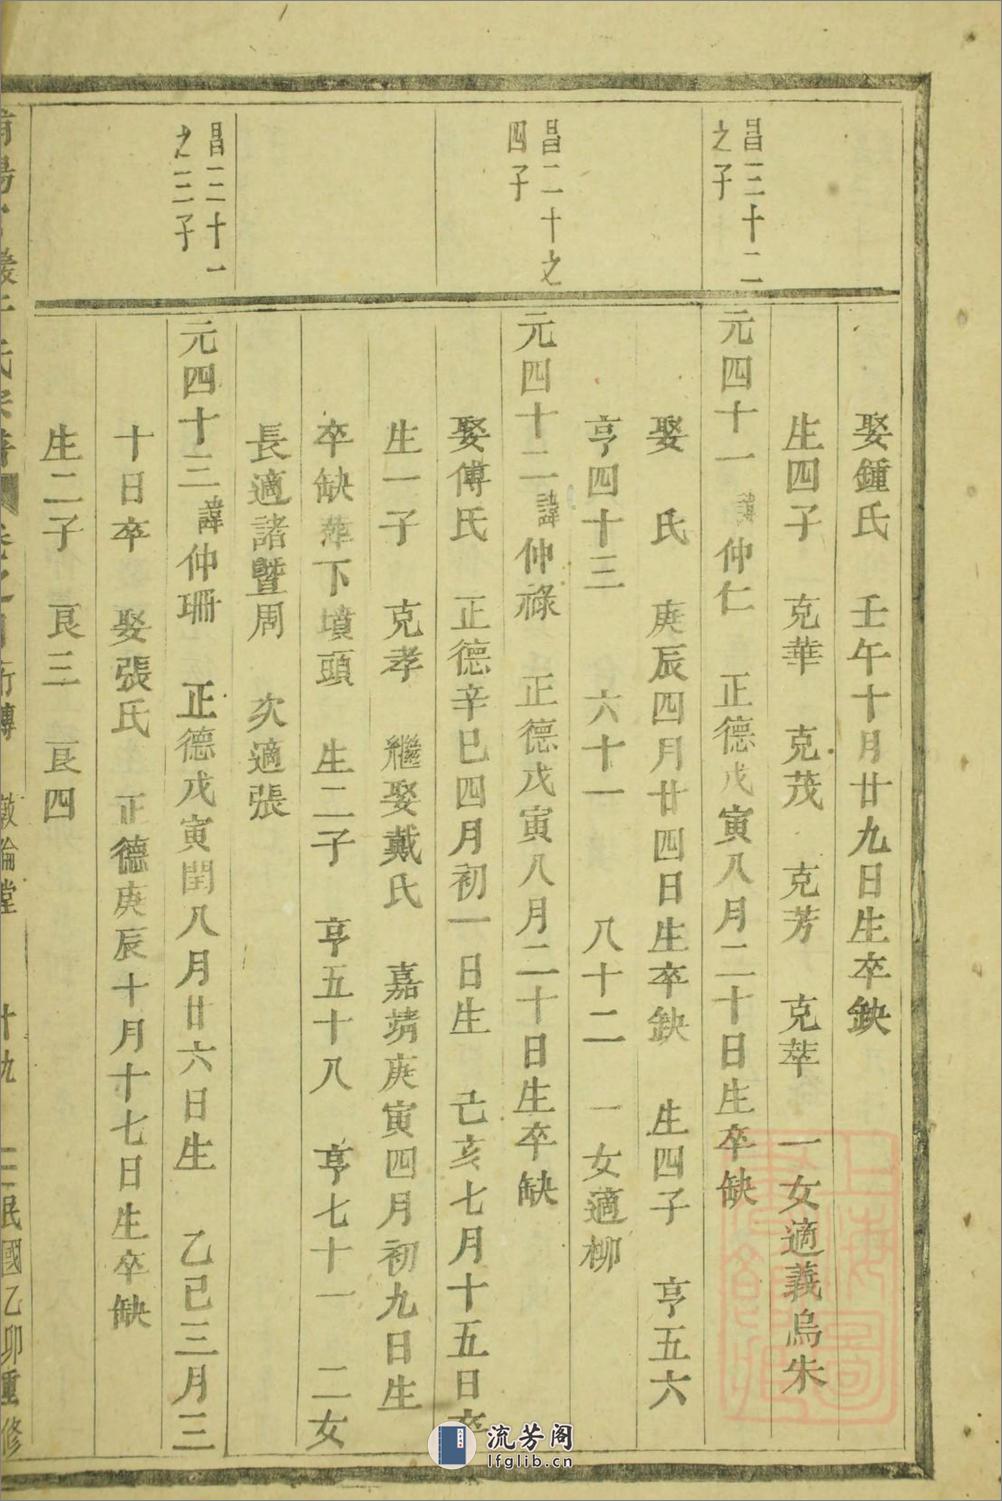 娶鍾氏 壬午十月廿九日生卒缺
生四子 克華 克茂 克芳 克萃 一女適義烏朱
昌三十二
之子
元四十一諱仲仁 正德戊寅八月二十日生卒缺
娶 氏 庚辰四月廿四日生卒缺 生四子 亨五六
亨四十三 六十一 八十二 一女適柳
昌二十之
四子
元四十二諱仲祿 正德戊寅八月二十日生卒缺
娶傅氏 正德辛巳四月初一日生 己亥七月十五日卒
生一子 克孝 繼娶戴氏 嘉靖庚寅四月初九日生
卒缺葬下墳頭 生二子 亨五十八 亨七十一 二女
長適諸暨周 次適張
昌三十一
之三子
元四十三諱仲珊 正德戊寅閏八月廿六日生 乙巳三月三
十日卒 娶張氏 正德庚辰十月十七日生卒缺
生二子 良三 良四
敦倫堂 十九 民國乙卯重修
流芳阁
lfglib.cn